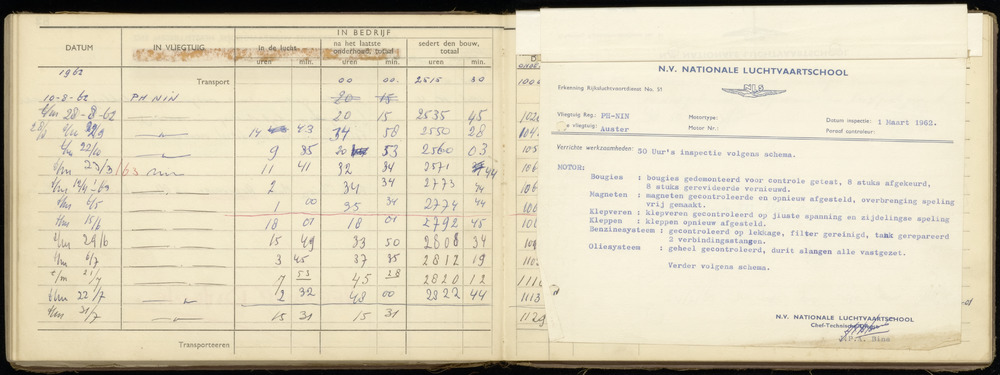 IN BEDRIJF
DATUM IN VLIEGTUIG in de lucht na het laatste onderhoud, totaal sedert den bouw, totaal
uren min. uren min. uren min.
1962 Transport 00 00. 2515 30
10-8-62 PH NIN 20 15
t/m 28-8-62 20 15 2535 45
14 43 34 58 2550 28
t/m 22/10 9 35 53 2560 03
t/m 23/3/63 11 41 32 34 2571 44
2 34 34 2773 44
t/m 6/5 1 00 35 34 2774 44
t/m 15/6 18 01 18 01 2792 45
t/m 29/6 15 49 33 50 2808 34
t/m 6/7 3 45 37 35 2812 19
t/m 21/7 7 53 45 28 2820 12
t/m 22/7 2 32 48 00 2822 44
t/m 31/7 15 31 15 31
Transporteeren
1113
1129
N.V. NATIONALE LUCHTVAARTSCHOOL
Erkenning Rijksluchtvaartdienst No. 51
Vliegtuig Reg.: PH-NIN Motortype: Datum inspectie: 1 Maart 1962.
vliegtuig: Auster Motor Nr.: Paraaf controleur:
Verrichte werkzaamheden: 50 Uur's inspectie volgens schema.
MOTOR:
Bougies : bougies gedemonteerd voor controle getest, 8 stuks afgekeurd,
8 stuks gereviseerde vernieuwd.
Magneten : magneten gecontroleerd en opnieuw afgesteld, overbrenging speling
vrij gemaakt.
Klepveren : klepveren gecontroleerd op juiste spanning en zijdelingse speling
Kleppen : kleppen opnieuw afgesteld.
Benzinesysteem : gecontroleerd op lekkage, filter gereinigd, tank gerepareerd
2 verbindingsstangen.
Oliesysteem : geheel gecontroleerd, durit slangen alle vastgezet.
Verder volgens schema.
N.V. NATIONALE LUCHTVAARTSCHOOL